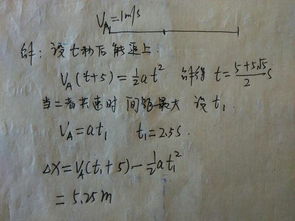 V_A=1m/s
解：设t秒后能追上：
V_A(t+5)=½at² 解得 t=(5+5√5)/2 s
当二者共速时间距最大 设t₁
V_A=at₁ t₁=2.5s.
ΔX=V_A(t₁+5)-½at₁²
=5.25m